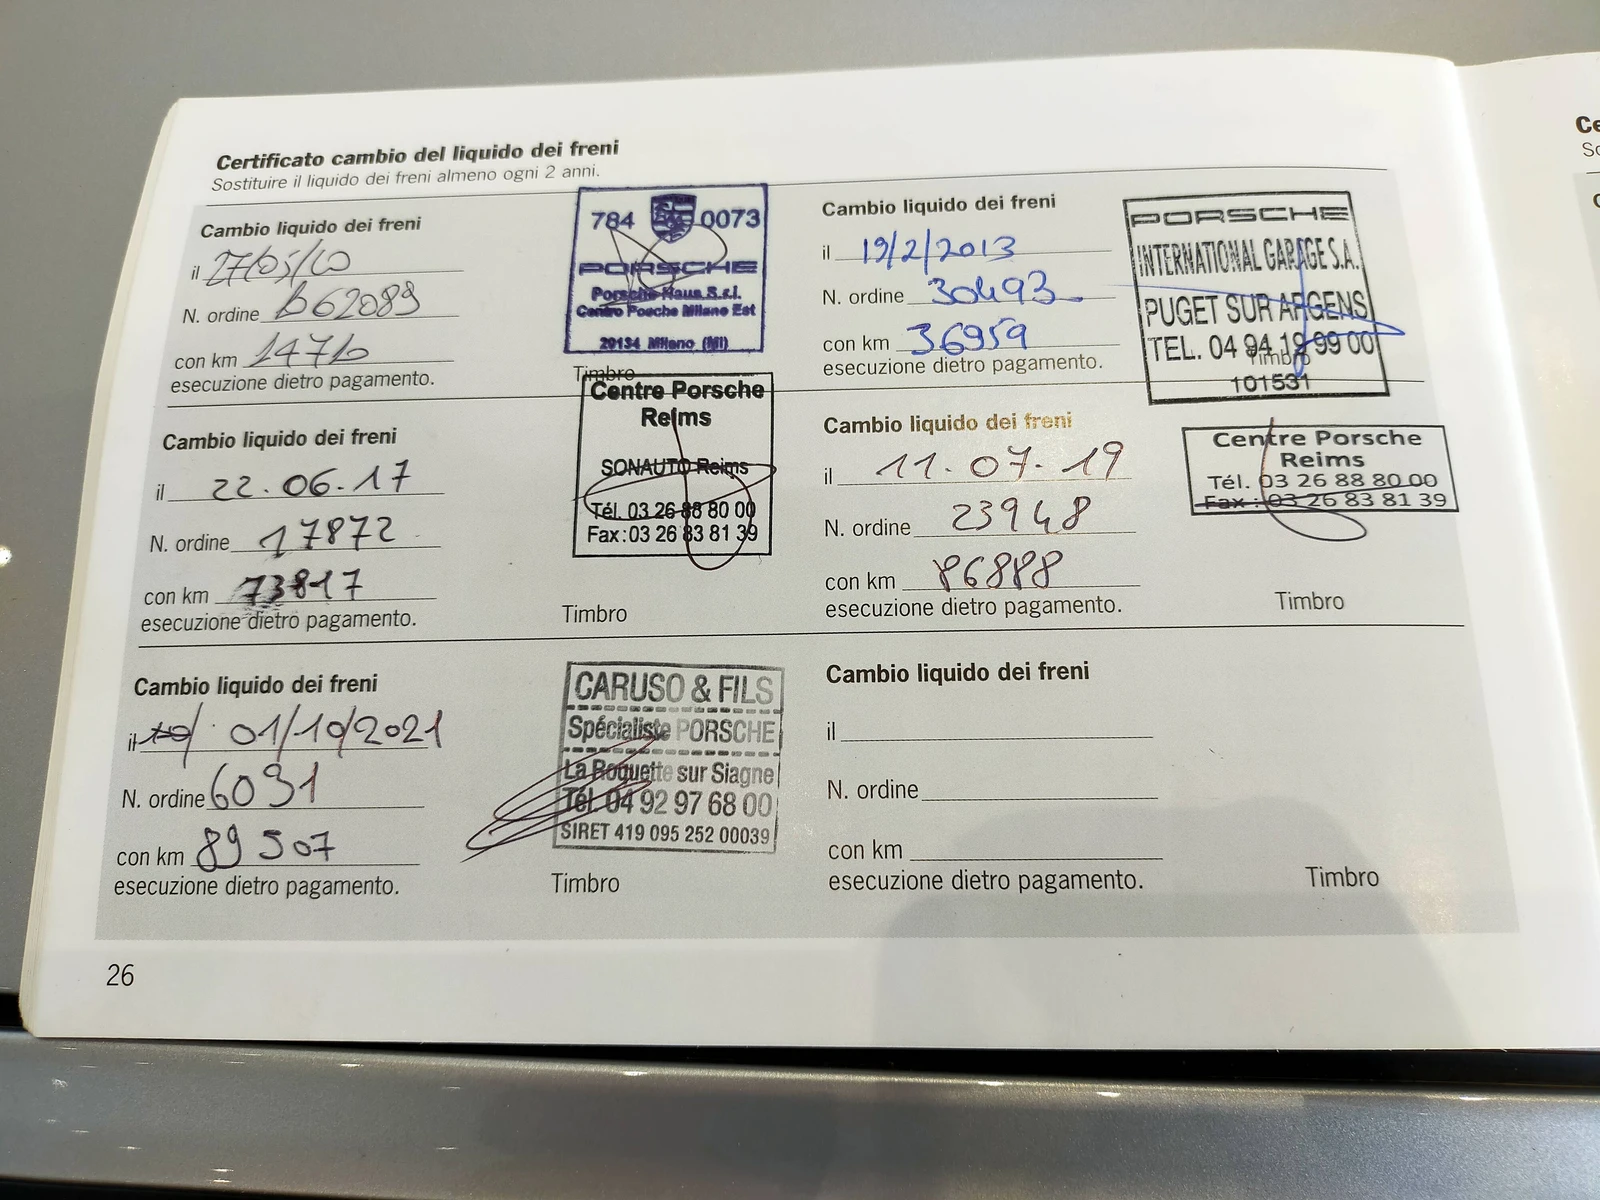 Certificato cambio del liquido dei freni
Sostituire il liquido dei freni almeno ogni 2 anni.
Cambio liquido dei freni
il 27/05/10
N. ordine b62089
con km 14710
esecuzione dietro pagamento.
784 0073
PORSCHE
Porsche Haus S.r.l.
Centro Posche Milano Est
20134 Milano (MI)
Timbro
Cambio liquido dei freni
il 19/2/2013
N. ordine 30493
con km 36959
esecuzione dietro pagamento.
PORSCHE
INTERNATIONAL GARAGE S.A.
PUGET SUR ARGENS
TEL. 04 94 19 99 00
Timbro
101531
Cambio liquido dei freni
il 22.06.17
N. ordine 17872
con km 73817
esecuzione dietro pagamento.
Centre Porsche
Reims
SONAUTO Reims
Tél. 03 26 88 80 00
Fax : 03 26 83 81 39
Timbro
Cambio liquido dei freni
il 11.07.19
N. ordine 23948
con km 86888
esecuzione dietro pagamento.
Centre Porsche
Reims
Tél. 03 26 88 80 00
Fax : 03 26 83 81 39
Timbro
Cambio liquido dei freni
il 01/10/2021
N. ordine 6091
con km 89507
esecuzione dietro pagamento.
CARUSO & FILS
Spécialiste PORSCHE
La Roquette sur Siagne
Tél. 04 92 97 68 00
SIRET 419 095 252 00039
Timbro
Cambio liquido dei freni
il
N. ordine
con km
esecuzione dietro pagamento.
Timbro
26